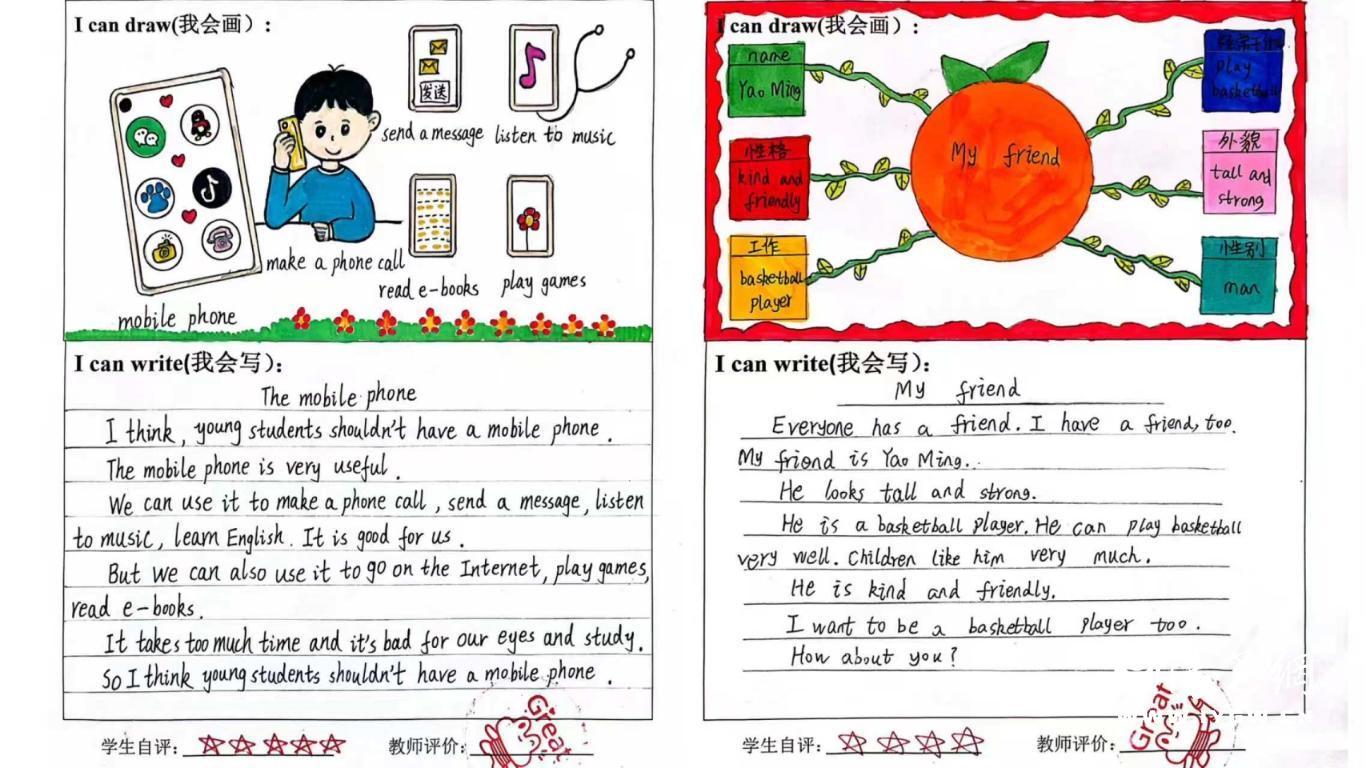 I can draw(我会画）：
发送
send a message
listen to music
make a phone call
read e-books
play games
mobile phone
I can write(我会写)：
The mobile phone
I think, young students shouldn't have a mobile phone.
The mobile phone is very useful.
We can use it to make a phone call, send a message, listen
to music, learn English. It is good for us.
But we can also use it to go on the Internet, play games,
read e-books.
It takes too much time and it's bad for our eyes and study.
So I think young students shouldn't have a mobile phone.
学生自评：
教师评价：
Great
I can draw(我会画）：
name
Yao Ming
性格
kind and
friendly
工作
basketball
player
My friend
play
basketball
外貌
tall and
strong
性别
man
I can write(我会写)：
My friend
Everyone has a friend. I have a friend, too.
My friend is Yao Ming..
He looks tall and strong.
He is a basketball player. He can play basketball
very well. Children like him very much.
He is kind and friendly.
I want to be a basketball player too.
How about you?
学生自评：
教师评价：
Great